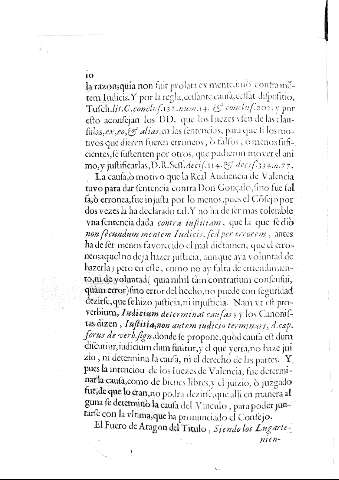 10
la razon, quia non fuit prolata ex mente, imò contra mẽ-
tem Iudicis. Y por la regla, cessante causa, cessat dispositio,
Tusch. lit. C. conclus. 132. num. 14. & conclus. 202. y por
esto aconsejan los DD. que los Iuezes vien de las clau-
sulas, ex eo, & alias en las sentencias, para que si los mo-
tivos que dieren fueren erroneos, ò falsos, ò menos sufi-
cientes, se sustenten por otros, que pudieron mover el ani
mo, y justificarlas, D. R. Sess. decis. 114. & decis. 334. n. 27.
La causa, ò motivo que la Real Audiencia de Valencia
tuvo para dar sentencia contra Don Gonçalo, sino fue fal
sa, ò erronea, fue injusta por lo menos, pues el Cõsejo por
dos vezes la ha declarado tal. Y no ha de ser mas tolerable
vna sentencia dada contra iustitiam, que la que se diò
non secundum mentem Iudicis, sed per errorem, antes
ha de ser menos favorecido el mal dictamen, que el erro-
neo: aquel no dexa hazer justicia, aunque aya voluntad de
hazerla; pero en este, como no ay falta de entendamen-
to, ni de voluntad, (quia nihil tàm contrarium consensui,
quàm error) sino error del hecho, no puede con seguridad
dezirse, que se hizo justicia, ni injusticia. Nam vt est pro-
verbium, Iudicium determinat causas; y los Canonis-
tas dizen, Iustitia, non autem iudicio terminus,
de verb. sign. donde se propone, quòd causa est dum
dicitur, iudicium dum fuitur, y el que yerra, no haze jui
zio, ni determina la causa, ni el derecho de las partes. Y
pues la intencion de los Iuezes de Valencia, fue determi-
nar la causa, como de bienes libres, y el juizio, ò juzgado
fue, de que lo eran, no podra dezirse, que alli en manera al
guna se determinò la causa del Vinculo, para poder jun-
tarse con la vltima, que ha pronunciado el Consejo.
El Fuero de Aragon del Titulo, Siendo los Lugarte-
nien-